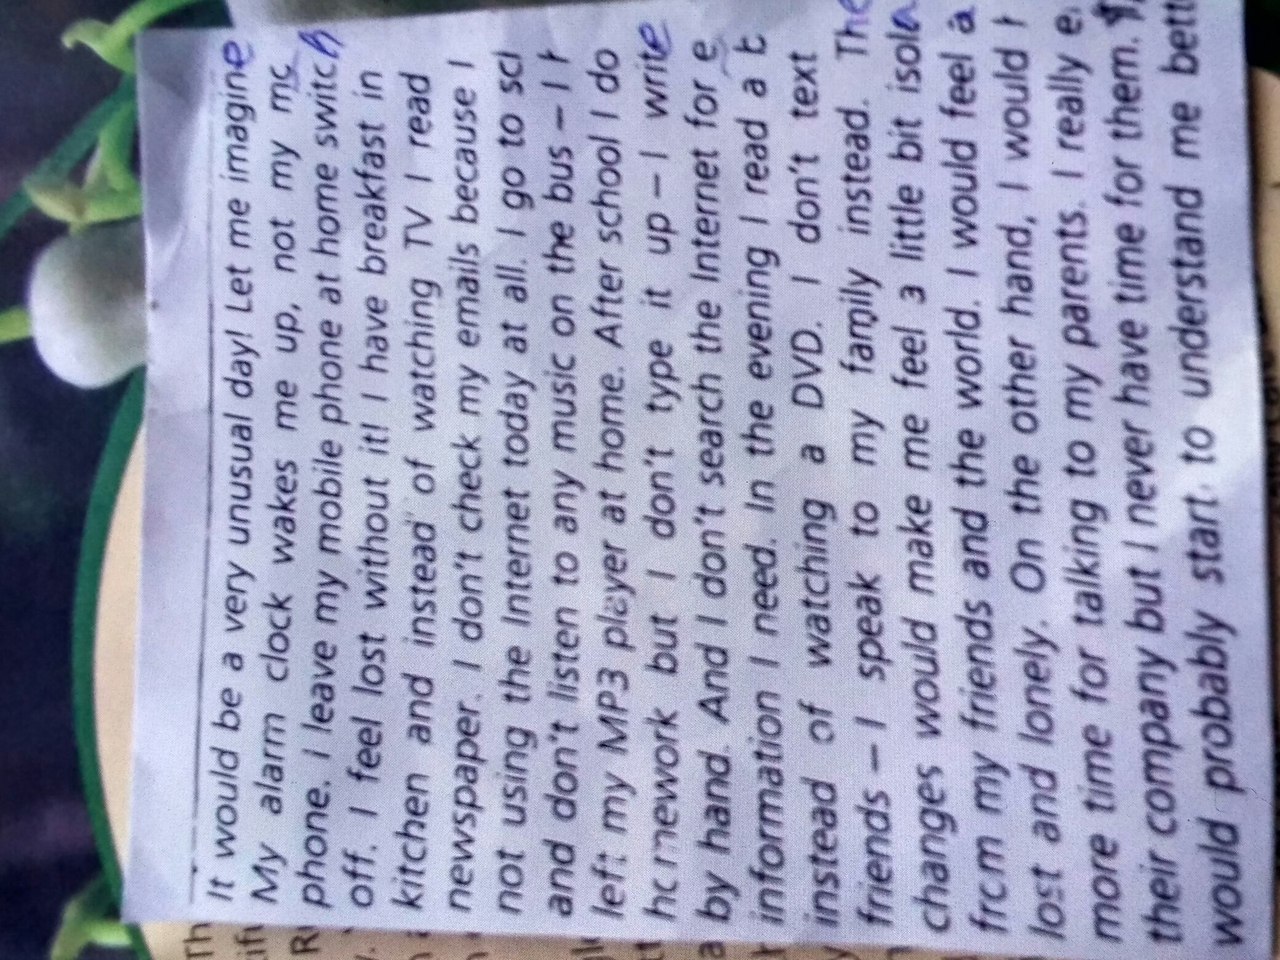 It would be a very unusual day! Let me imagine
My alarm clock wakes me up, not my
phone. I leave my mobile phone at home switch
off. I feel lost without it! I have breakfast in
kitchen and instead of watching TV I read
newspaper. I don't check my emails because I
not using the Internet today at all. I go to
and don't listen to any music on the bus – I
left my MP3 player at home. After school I do
homework but I don't type it up – I write
by hand. And I don't search the Internet for
information I need. In the evening I read a
instead of watching a DVD. I don't text
friends – I speak to my family instead. The
changes would make me feel a little bit
from my friends and the world. I would feel a
lost and lonely. On the other hand, I would
more time for talking to my parents. I really
their company but I never have time for them.
would probably start to understand me